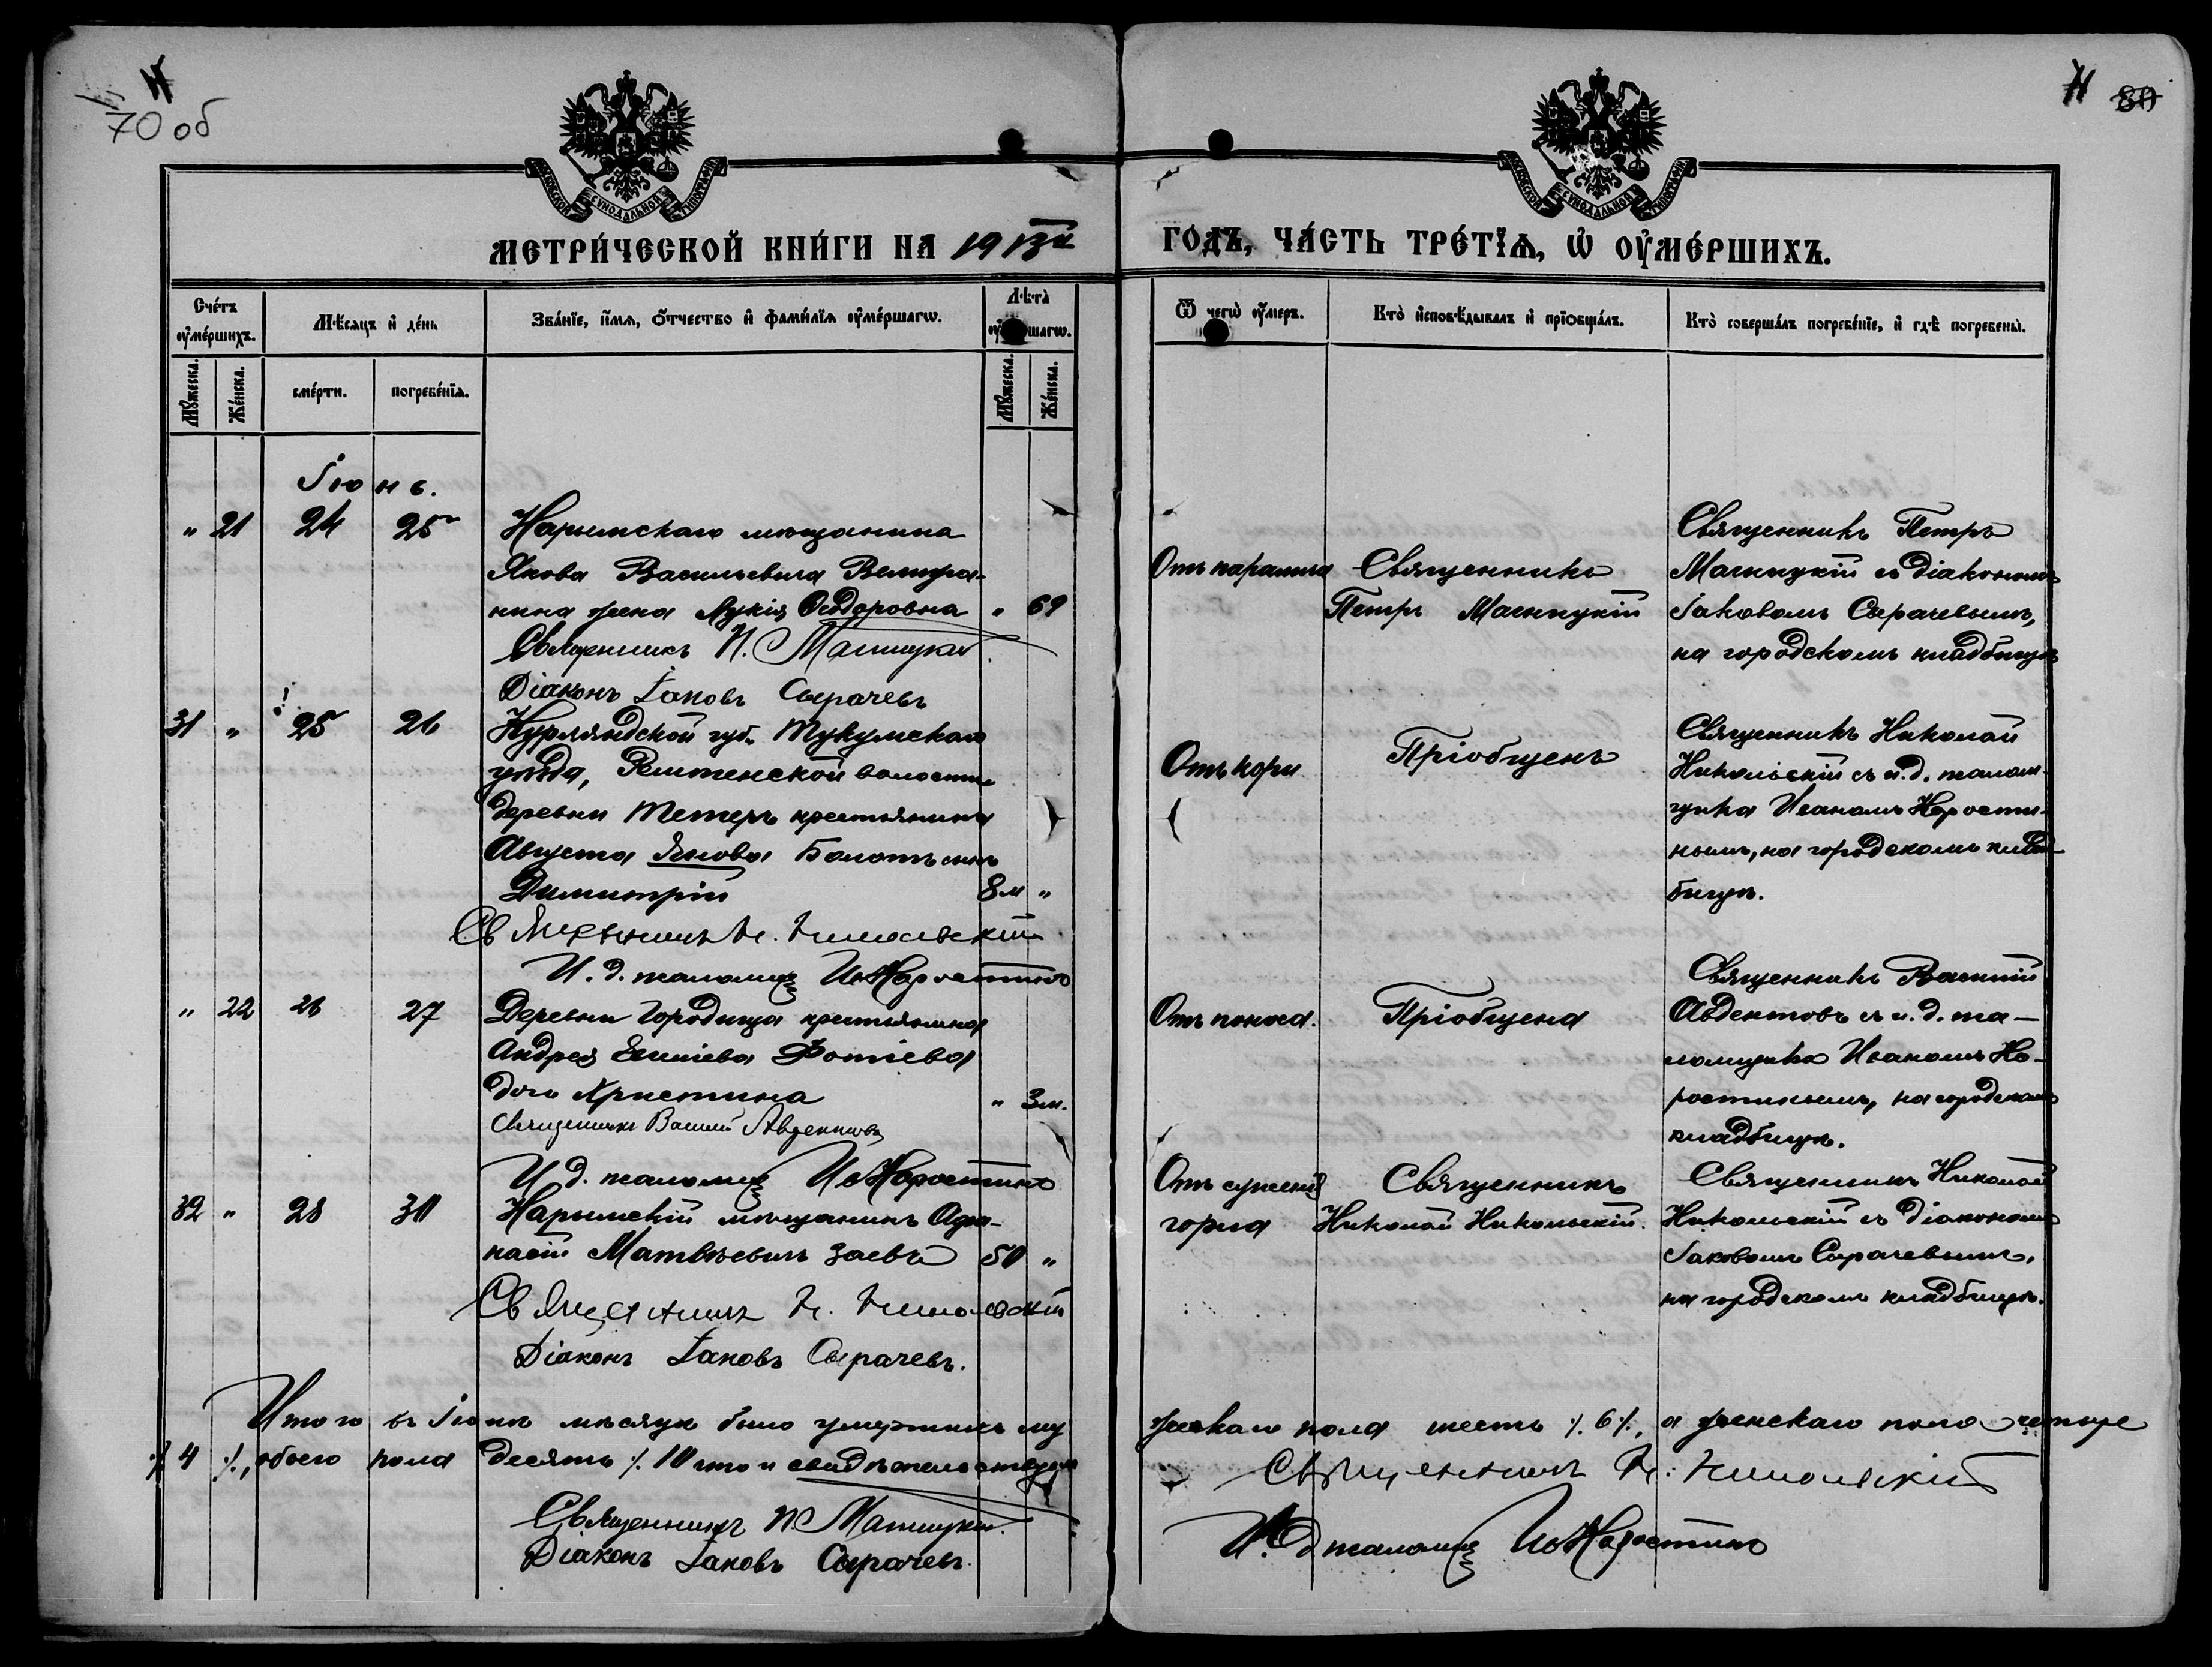 70 об
80
СѴНОДАЛЬНОЙ
СѴНОДАЛЬНОЙ
МЕТРИ́ЧЕСКОЙ КНИ́ГИ НА 1913й ГОДЪ, ЧА́СТЬ ТРЕ́ТЇѦ, Ѡ ОУ҆МЕ́РШИХЪ.
Сче́тъ оу҆ме́ршихъ.
Мѣ́сѧцъ и҆ де́нь
Зва́нїе, и҆́мѧ, ѻ҆́тчество и҆ фами́лїѧ оу҆ме́ршагѡ.
Лѣ́та
шагѡ.
Ѿ чегѡ̀ оу҆́меръ.
Кто̀ и҆сповѣ́дывалъ и҆ прїѡбща́лъ.
Кто̀ соверша́лъ погребе́нїе, и҆ гдѣ̀ погребены̀.
Мꙋ́жеска.
Же́нска.
сме́рти.
погребе́нїѧ.
Мꙋ́жеска.
Же́нска.
Іюнь.
" 21 24 25
Нарымскаго мѣщанина
Якова Васильевича
нина жена Лукія Ѳеодоровна " 69
Священникъ П. Магницкій
Діаконъ Іаковъ Сырачевъ
Отъ паралича
Священникъ
Петръ Магницкій
Священникъ Петръ
Магницкій съ діакономъ
Іаковомъ Сырачевымъ,
на городскомъ кладбищѣ
31 " 25 26
Курляндской губ. Тукумскаго
уѣзда, волости
деревни Тетеръ крестьянина
Августа Янова Болотъ сынъ
Димитрій 8м "
Священникъ Н. Никольскій
И. д. псаломщ Ив Хоростинъ
Отъ кори
Пріобщенъ
Священникъ Николай
Никольскій съ и. д. псалом-
щика Иваномъ Хорости-
нымъ, на городскомъ клад-
бищѣ.
" 22 26 27
Деревни Городища крестьянина
Андрея Фотіева
дочь Христина " 3м.
Священникъ Василій Авдентовъ
И д. псаломщ Ив Хоростинъ
Отъ поноса.
Пріобщена
Священникъ Василій
Авдентовъ съ и. д. пса-
ломщика Иваномъ Хо-
ростинымъ, на городскомъ
кладбищѣ.
32 " 28 30
Нарымскій мѣщанинъ Афа-
насій Матвѣевичъ Заевъ 50 "
Священникъ Н. Никольскій
Діаконъ Іаковъ Сырачевъ.
Отъ суженія
горла
Священникъ
Николай Никольскій.
Священникъ Николай
Никольскій съ діакономъ
Іаковомъ Сырачевымъ,
на городскомъ кладбищѣ.
Итого въ Іюнѣ мѣсяцѣ было умершихъ му
жескаго пола шесть ⁒ 6 ⁒, а женскаго пола четыре
⁒ 4 ⁒, обоего пола десять ⁒ 10 что и свидѣтельствуемъ
Священникъ П. Магницкій.
Діаконъ Іаковъ Сырачевъ.
Священникъ Н. Никольскій
И. д псаломщ Ив Хоростинъ